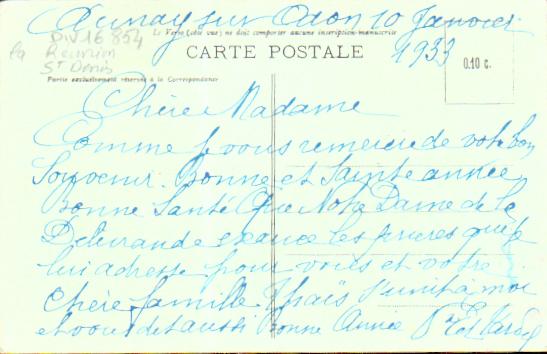 Aunay sur Odon 10 Janvier
1933
Le Verso (côté vue) ne doit comporter aucune inscription manuscrite
DIV16 854
la Réunion
St Denis
CARTE POSTALE
0.10 c.
Partie exclusivement réservée à la Correspondance
Chère Madame
Comme je vous remercie de votre bon
Souvenir. Bonne et Sainte année
Bonne Santé Que Notre Dame de la
Délivrande exauce les prières que je
lui adresse pour vous et votre
Chère famille. Thaïs s'unit a moi
et vous dit aussi Bonne Année